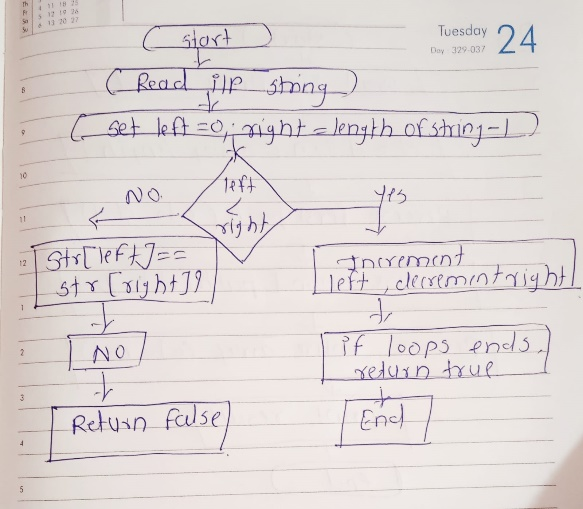 Th 4 11 18 25
Fr 5 12 19 26
Sa 6 13 20 27
Su
Tuesday 24
Day 329-037
start
Read i/p string
set left = 0, right = length of string - 1
left
<
right
NO.
yes
Str[left] ==
str [right]?
Increment
left, decrement right
NO
if loops ends,
return true
Return false
End
8
9
10
11
12
1
2
3
4
5